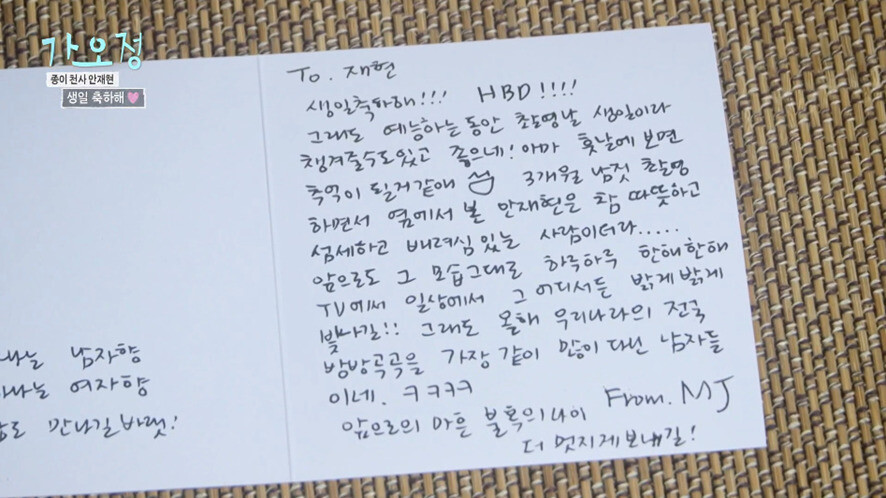 가오정
종이 천사 안재현
생일 축하해
To. 재현
생일축하해!!! HBD!!!!
그래도 예능하는 동안 촬영날 생일이라
챙겨줄수도있고 좋으네! 아마 훗날에 보면
추억이 될거같애 3개월 남짓 촬영
하면서 옆에서 본 안재현은 참 따뜻하고
섬세하고 배려심있는 사람이더라.....
앞으로도 그 모습그대로 하루하루 한해한해
TV에서 일상에서 그 어디서든 밝게밝게
빛나길!! 그래도 올해 우리나라의 전국
방방곡곡을 가장 같이 많이 다닌 남자들
이네. ㅋㅋㅋㅋ
앞으로의 마흔 불혹의나이 From. MJ
더 멋지게보내길!
나는 남자향
나는 여자향
만나길바랫!